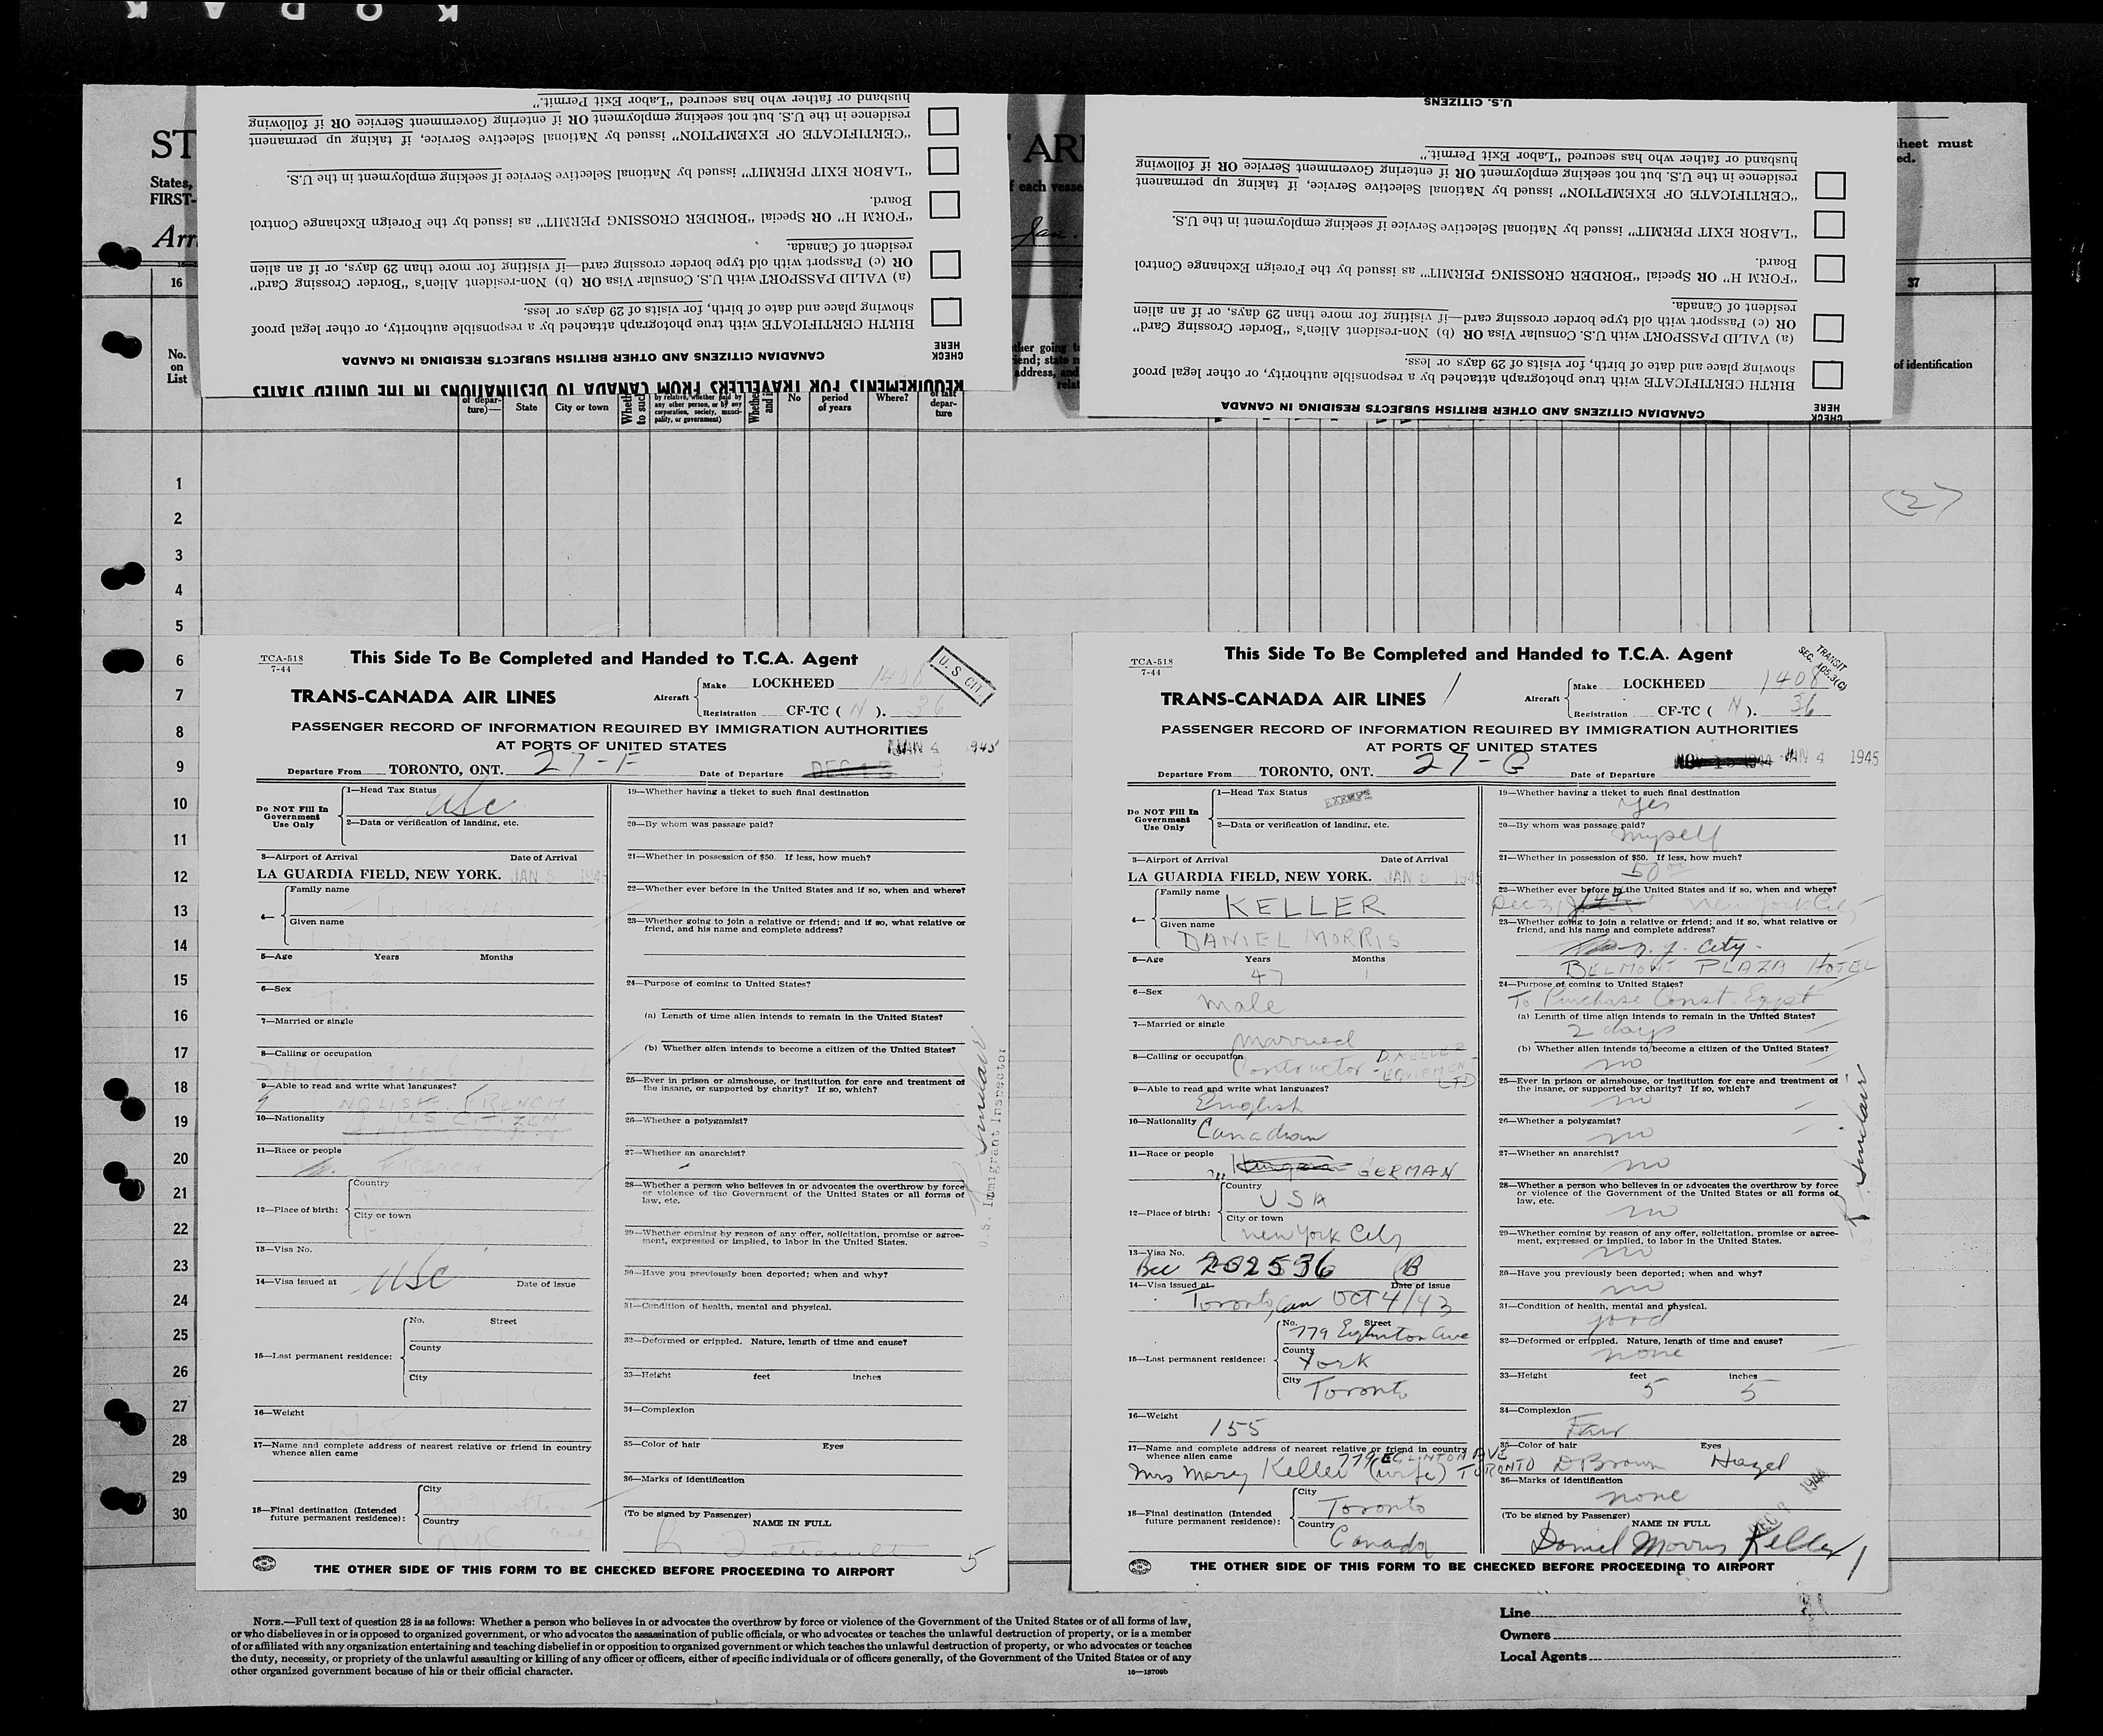 KODAK
ST
States,
FIRST-
Arr
16
No.
on
List
AR
f each vesse
Jan.
ther going t
iend; state n
address, and
relat
sheet must
ed.
37
of identification
REQUIREMENTS FOR TRAVELLERS FROM CANADA TO DESTINATIONS IN THE UNITED STATES
CHECK
HERE
CANADIAN CITIZENS AND OTHER BRITISH SUBJECTS RESIDING IN CANADA
BIRTH CERTIFICATE with true photograph attached by a responsible authority, or other legal proof
showing place and date of birth, for visits of 29 days or less.
(a) VALID PASSPORT with U.S. Consular Visa OR (b) Non-resident Alien's "Border Crossing Card"
OR (c) Passport with old type border crossing card—if visiting for more than 29 days, or if an alien
resident of Canada.
"FORM H" OR Special "BORDER CROSSING PERMIT" as issued by the Foreign Exchange Control
Board.
"LABOR EXIT PERMIT" issued by National Selective Service if seeking employment in the U.S.
"CERTIFICATE OF EXEMPTION" issued by National Selective Service, if taking up permanent
residence in the U.S. but not seeking employment OR if entering Government Service OR if following
husband or father who has secured "Labor Exit Permit."
CHECK
HERE
CANADIAN CITIZENS AND OTHER BRITISH SUBJECTS RESIDING IN CANADA
BIRTH CERTIFICATE with true photograph attached by a responsible authority, or other legal proof
showing place and date of birth, for visits of 29 days or less.
(a) VALID PASSPORT with U.S. Consular Visa OR (b) Non-resident Alien's "Border Crossing Card"
OR (c) Passport with old type border crossing card—if visiting for more than 29 days, or if an alien
resident of Canada.
"FORM H" OR Special "BORDER CROSSING PERMIT" as issued by the Foreign Exchange Control
Board.
"LABOR EXIT PERMIT" issued by National Selective Service if seeking employment in the U.S.
"CERTIFICATE OF EXEMPTION" issued by National Selective Service, if taking up permanent
residence in the U.S. but not seeking employment OR if entering Government Service OR if following
husband or father who has secured "Labor Exit Permit."
U.S. CITIZENS
of depar-
ture)—
State
City or town
Wheth
to suc
by relative, whether paid by
any other person, or by any
corporation, society, munci-
pality, or government)
Whethe
and i
No
period
of years
Where?
of last
depar-
ture
1
2
3
4
5
6
7
8
9
10
11
12
13
14
15
16
17
18
19
20
21
22
23
24
25
26
27
28
29
30
(2)
TCA-518
7-44
This Side To Be Completed and Handed to T.C.A. Agent
U. S. CIT.
TRANS-CANADA AIR LINES
Aircraft
Make LOCKHEED 1408
Registration CF-TC ( N ). 36
PASSENGER RECORD OF INFORMATION REQUIRED BY IMMIGRATION AUTHORITIES
AT PORTS OF UNITED STATES
JAN 4 1945
Departure From TORONTO, ONT. 27-F Date of Departure
Do NOT Fill In
Government
Use Only
1—Head Tax Status
USC
2—Data or verification of landing, etc.
3—Airport of Arrival Date of Arrival
LA GUARDIA FIELD, NEW YORK. JAN 5 194
4—
Family name
Given name
5—Age Years Months
6—Sex
7—Married or single
8—Calling or occupation
9—Able to read and write what languages?
ENGLISH FRENCH
10—Nationality
US CITIZEN
11—Race or people
FRENCH
12—Place of birth:
Country
City or town
13—Visa No.
14—Visa issued at USC Date of issue
15—Last permanent residence:
No. Street
County
City
16—Weight
17—Name and complete address of nearest relative or friend in country
whence alien came
18—Final destination (Intended
future permanent residence):
City
Country
NYC
19—Whether having a ticket to such final destination
20—By whom was passage paid?
21—Whether in possession of $50. If less, how much?
22—Whether ever before in the United States and if so, when and where?
23—Whether going to join a relative or friend; and if so, what relative or
friend, and his name and complete address?
24—Purpose of coming to United States?
(a) Length of time alien intends to remain in the United States?
(b) Whether alien intends to become a citizen of the United States?
25—Ever in prison or almshouse, or institution for care and treatment of
the insane, or supported by charity? If so, which?
26—Whether a polygamist?
27—Whether an anarchist?
28—Whether a person who believes in or advocates the overthrow by force
or violence of the Government of the United States or all forms of
law, etc.
29—Whether coming by reason of any offer, solicitation, promise or agree-
ment, expressed or implied, to labor in the United States.
30—Have you previously been deported; when and why?
31—Condition of health, mental and physical.
32—Deformed or crippled. Nature, length of time and cause?
33—Height feet inches
34—Complexion
35—Color of hair Eyes
36—Marks of identification
(To be signed by Passenger)
NAME IN FULL
5
Sinclair
U.S. Immigrant Inspector
THE OTHER SIDE OF THIS FORM TO BE CHECKED BEFORE PROCEEDING TO AIRPORT
TCA-518
7-44
This Side To Be Completed and Handed to T.C.A. Agent
TRANSIT
SEC. 105.3(C)
TRANS-CANADA AIR LINES
Aircraft
Make LOCKHEED 1408
Registration CF-TC ( N ). 36
PASSENGER RECORD OF INFORMATION REQUIRED BY IMMIGRATION AUTHORITIES
AT PORTS OF UNITED STATES
Departure From TORONTO, ONT. 27-G Date of Departure JAN 4 1945
Do NOT Fill In
Government
Use Only
1—Head Tax Status
EXEMPT
2—Data or verification of landing, etc.
3—Airport of Arrival Date of Arrival
LA GUARDIA FIELD, NEW YORK. JAN 5 1945
4—
Family name
KELLER
Given name
DANIEL MORRIS
5—Age Years Months
47 1
6—Sex
male
7—Married or single
married
8—Calling or occupation
Contractor - D. KELLER EQUIPMENT LTD
9—Able to read and write what languages?
English
10—Nationality Canadian
11—Race or people
GERMAN
12—Place of birth:
Country
USA
City or town
New York City
13—Visa No.
Bcc 202536 B
14—Visa issued at Date of issue
Toronto, Can OCT 4/43
15—Last permanent residence:
No. Street
779 Eglinton Ave
County
York
City
Toronto
16—Weight
155
17—Name and complete address of nearest relative or friend in country
whence alien came 779 EGLINTON AVE
Mrs Mary Keller (wife) TORONTO
18—Final destination (Intended
future permanent residence):
City
Toronto
Country
Canada
19—Whether having a ticket to such final destination
Yes
20—By whom was passage paid?
Myself
21—Whether in possession of $50. If less, how much?
50
22—Whether ever before in the United States and if so, when and where?
Dec 31/44 New York City
23—Whether going to join a relative or friend; and if so, what relative or
friend, and his name and complete address?
N.Y. City.
BELMONT PLAZA HOTEL
24—Purpose of coming to United States?
To Purchase Const. Eqpt
(a) Length of time alien intends to remain in the United States?
2 days
(b) Whether alien intends to become a citizen of the United States?
no
25—Ever in prison or almshouse, or institution for care and treatment of
the insane, or supported by charity? If so, which?
no
26—Whether a polygamist?
no
27—Whether an anarchist?
no
28—Whether a person who believes in or advocates the overthrow by force
or violence of the Government of the United States or all forms of
law, etc.
no
29—Whether coming by reason of any offer, solicitation, promise or agree-
ment, expressed or implied, to labor in the United States.
no
30—Have you previously been deported; when and why?
no
31—Condition of health, mental and physical.
good
32—Deformed or crippled. Nature, length of time and cause?
none
33—Height feet inches
5 5
34—Complexion
Fair
35—Color of hair Eyes
D Brown Hazel
36—Marks of identification
none
(To be signed by Passenger)
NAME IN FULL
Daniel Morris Keller
Sinclair
THE OTHER SIDE OF THIS FORM TO BE CHECKED BEFORE PROCEEDING TO AIRPORT
NOTE.—Full text of question 28 is as follows: Whether a person who believes in or advocates the overthrow by force or violence of the Government of the United States or of all forms of law,
or who disbelieves in or is opposed to organized government, or who advocates the assassination of public officials, or who advocates or teaches the unlawful destruction of property, or is a member
of or affiliated with any organization entertaining and teaching disbelief in or opposition to organized government or which teaches the unlawful destruction of property, or who advocates or teaches
the duty, necessity, or propriety of the unlawful assaulting or killing of any officer or officers, either of specific individuals or of officers generally, of the Government of the United States or of any
other organized government because of his or their official character.
16—18709b
Line
Owners
Local Agents